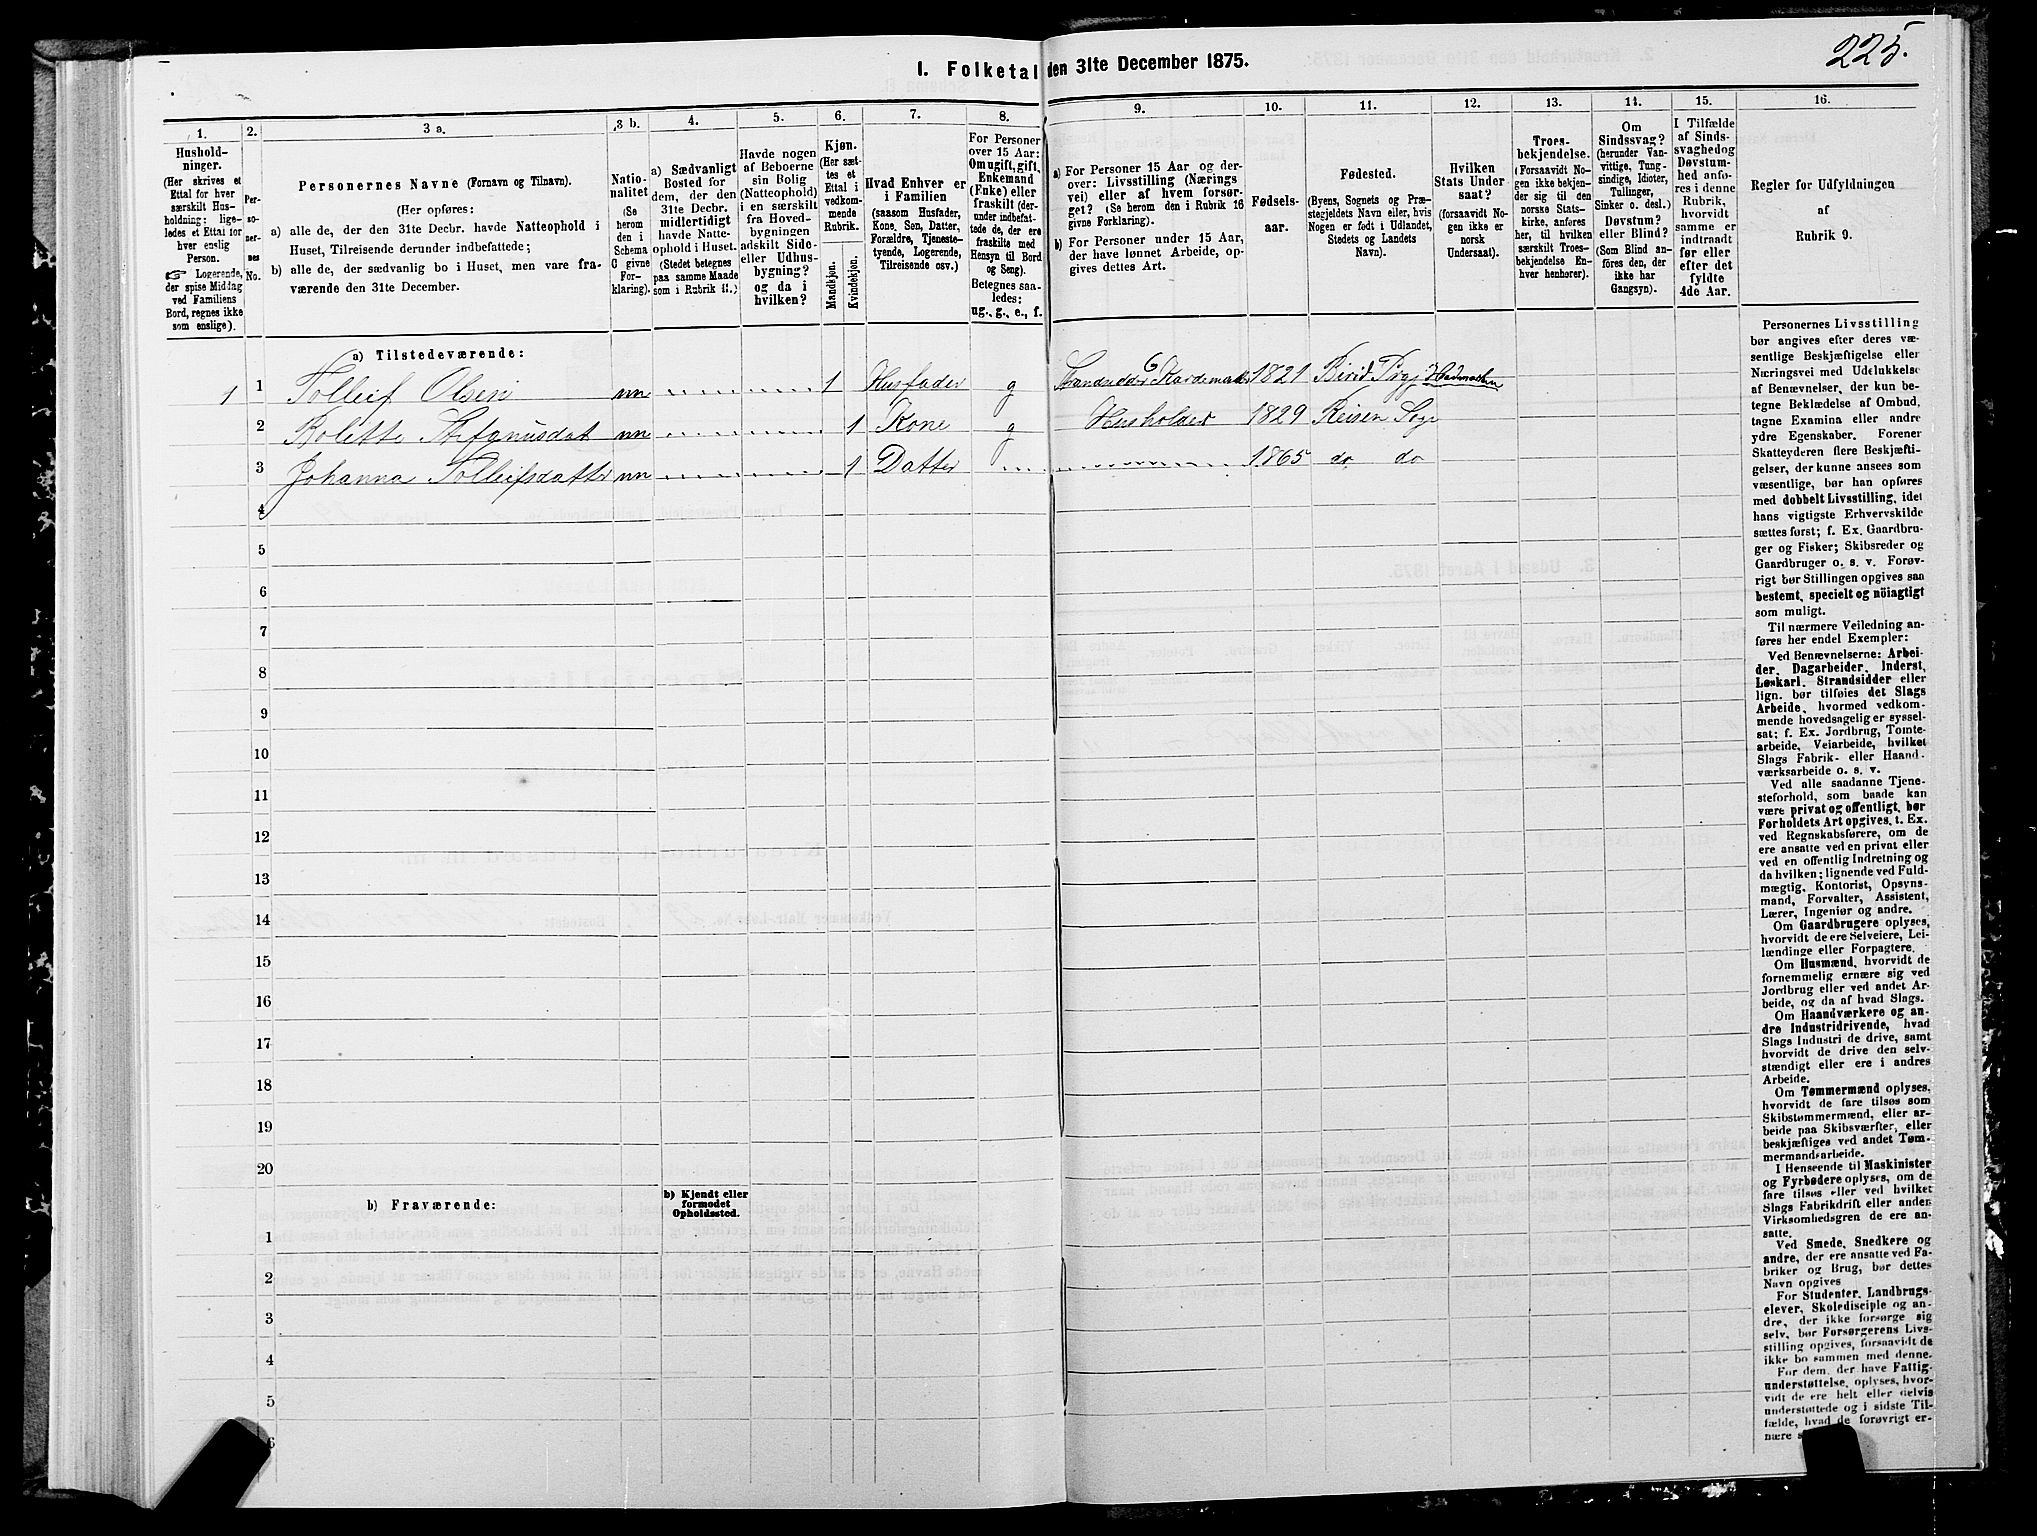 225.
I. Folketal den 31te December 1875.
1.
2.
3 a.
3 b.
4.
5.
6.
7.
8.
9.
10.
11.
12.
13.
14.
15.
16.
Hushold-
ninger.
(Her skrives et
Ettal for hver
særskilt Hus-
holdning; lige-
ledes et Ettal for
hver enslig
Person.
☞ Logerende,
der spise Middag
ved Familiens
Bord, regnes ikke
som enslige).
Per-
so-
ner-
nes
No.
Personernes Navne (Fornavn og Tilnavn).
(Her opføres:
a) alle de, der den 31te Decbr. havde Natteophold i
Huset, Tilreisende derunder indbefattede;
b) alle de, der sædvanlig bo i Huset, men vare fra-
værende den 31te December.
Natio-
nalitet
(Se
herom
den i
Schema
O givne
For-
klaring).
a) Sædvanligt
Bosted for
dem, der den
31te Decbr.
midlertidigt
havde Natte-
ophold i Huset.
(Stedet betegnes
paa samme Maade
som i Rubrik 11.)
Havde nogen
af Beboerne
sin Bolig
(Natteophold)
i en særskilt
fra Hoved-
bygningen
adskilt Side-
eller Udhus-
bygning?
og da i
hvilken?
Kjøn.
(Her sæt-
tes et
Ettal i
vedkom-
mende
Rubrik.
Mandkjøn.
Kvindekjøn.
Hvad Enhver er
i Familien
(saasom Husfader,
Kone, Søn, Datter,
Forældre, Tjeneste-
tyende, Logerende,
Tilreisende osv.)
For Personer
over 15 Aar:
Om ugift, gift,
Enkemand
(Enke) eller
fraskilt (der-
under indbefat-
tede de, der ere
fraskilte med
Hensyn til Bord
og Seng).
Betegnes saa-
ledes:
ug., g., e., f.
a) For Personer 15 Aar og der-
over: Livsstilling (Nærings
vei) eller af hvem forsør-
get? (Se herom den i Rubrik 16
givne Forklaring).
b) For Personer under 15 Aar,
der have lønnet Arbeide, op-
gives dettes Art.
Fødsels-
aar.
Fødested.
(Byens, Sognets og Præ-
stegjeldets Navn eller, hvis
Nogen er født i Udlandet,
Stedets og Landets
Navn).
Hvilken
Stats Under
saat?
(forsaavidt No-
gen ikke er
norsk
Undersaat).
Troes-
bekjendelse.
(Forsaavidt No-
gen ikke bekjen-
der sig til den
norske Stats-
kirke, anføres
her, til hvilken
særskilt Troes-
bekjendelse En-
hver henhorer).
Om
Sindssvag?
(herunder Van-
vittige, Tung-
sindige, Idioter,
Tullinger,
Sinker o. desl.)
Døvstum?
eller Blind?
(Som Blind an-
føres den, der
ikke har
Gangsyn).
I Tilfælde
af Sinds-
svaghedog
Døvstum-
hed anfø-
res i denne
Rubrik,
hvorvidt
samme er
indtraadt
før eller
efter det
fyldte
4de Aar.
Regler for Udfyldningen
af
Rubrik 9.
a) Tilstedeværende:
1 1 Tolleif Olsen nn 1 Husfader g 1821 Birid Prgj Hedmarken
2 Rolette nn 1 Kone g 1829 Reisen Sogn
3 Johanna Tolleifsdatter nn 1 Datter 1865 do do
4
5
6
7
8
9
10
11
12
13
14
15
16
17
18
19
20
b) Fraværende:
b) Kjendt eller
formodet
Opholdssted.
1
2
3
4
5
6
Personernes Livsstilling
bør angives efter deres væ-
sentlige Beskjæftigelse eller
Næringsvei med Udelukkelse
af Benævnelser, der kun be-
tegne Beklædelse af Ombud,
tagne Examina eller andre
ydre Egenskaber. Forener
Skatteyderen flere Beskjæfti-
gelser, der kunne ansees som
væsentlige, bør han opføres
med dobbelt Livsstilling, idet
hans vigtigste Erhvervskilde
sættes først; f. Ex. Gaardbru-
ger og Fisker; Skibsreder og
Gaardbruger o. s. v. Forøv-
rigt bør Stillingen opgives saa
bestemt, specielt og nöiagtigt
som muligt.
Til nærmere Veiledning an-
føres her endel Exempler:
Ved Benævnelserne: Arbei-
der, Dagarbeider, Inderst,
Løskarl, Strandsidder eller
lign. bør tilføies det Slags
Arbeide, hvormed vedkom-
mende hovedsagelig er syssel-
sat; f. Ex. Jordbrug, Tomte-
arbeide, Veiarbeide, hvilket
Slags Fabrik- eller Haand-
værksarbeide o. s. v.
Ved alle saadanne Tjene-
steforhold, som baade kan
være privat og offentligt, bør
Forholdets Art opgives, t. Ex.
ved Regnskabsførere, om de
ere ansatte ved en privat eller
ved en offentlig Indretning og
da hvilken; lignende ved Fuld-
mægtig, Kontorist, Opsyns-
mand, Forvalter, Assistent,
Lærer, Ingeniør og andre.
Om Gaardbrugere oplyses,
hvorvidt de ere Selveiere, Lei-
lændinge eller Forpagtere.
Om Husmænd, hvorvidt de
fornemmelig ernære sig ved
Jordbrug eller ved andet Ar-
beide, og da af hvad Slags.
Om Haandværkere og an-
dre Industridrivende, hvad
Slags Industri de drive, samt
hvorvidt de drive den selv-
stændigt eller ere i andres
Arbeide.
Om Tømmermænd oplyses,
hvorvidt de fare tilsøs som
Skibstømmermænd, eller ar-
beide paa Skibsværfter, eller
beskjæftiges ved andet Tøm-
mermandsarbeide.
I Henseende til Maskinister
og Fyrbødere oplyses, om de
fare tilsøs eller ved hvilket
Slags Fabrikdrift eller anden
Virksomhedsgren de ere an-
satte.
Ved Smede, Snedkere og
andre, der ere ansatte ved Fa-
briker og Brug, bør dettes
Navn opgives
For Studenter, Landbrugs-
elever, Skoledisciple og an-
dre, der ikke forsørge sig
selv, bør Forsørgerens Livs-
stilling opgives, forsaavidt de
ikke bo sammen med denne.
For dem, der have Fattig-
understøttelse, oplyses, hvor-
vidt de ere helt eller delvis
understøttede og i sidste Til-
fælde, hvad de forøvrigt er-
nære